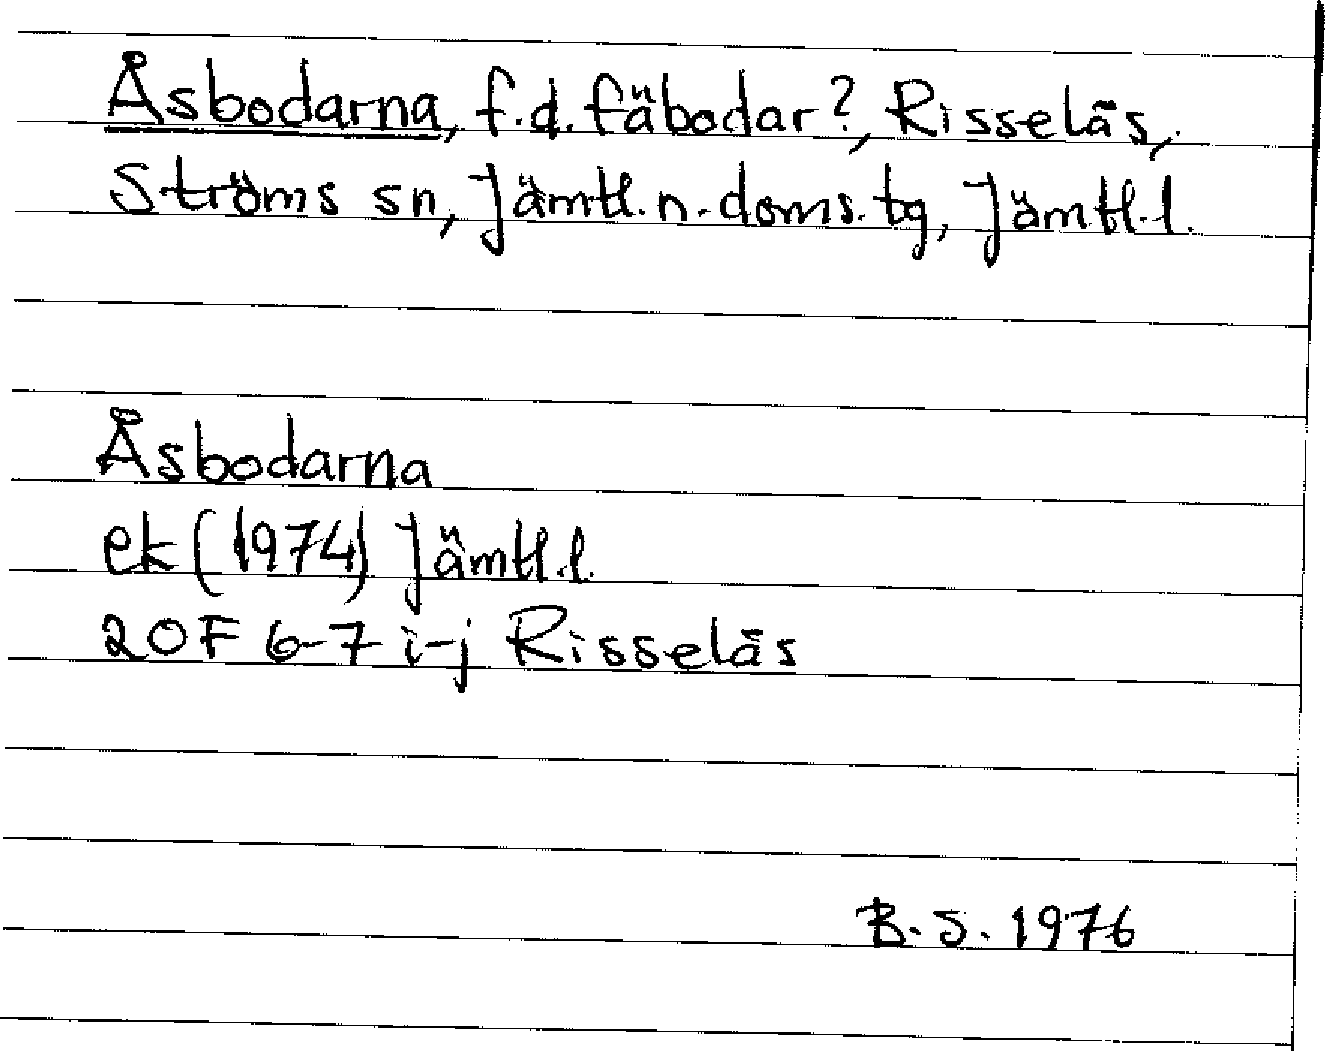 Åsbodarna, f.d. fäbodar?, Risselås,
Ströms sn, Jämtl.n.doms.tg, Jämtl.l.
Åsbodarna
ek (1974) Jämtl.l.
20F 6-7 i-j Risselås
B.S. 1976